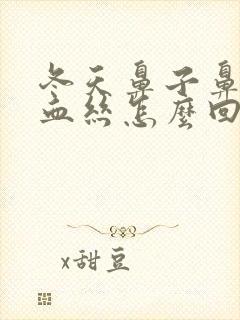 冬天鼻子鼻
血丝怎麼回
x甜豆